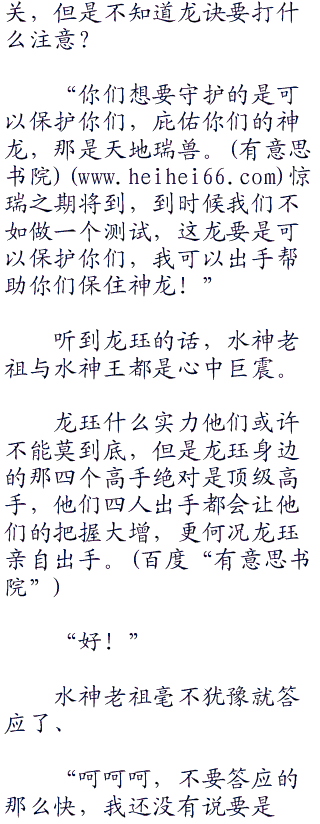 关，但是不知道龙诀要打什
么注意？
“你们想要守护的是可
以保护你们，庇佑你们的神
龙，那是天地瑞兽。(有意思
书院)(www.heihei66.com)惊
瑞之期将到，到时候我们不
如做一个测试，这龙要是可
以保护你们，我可以出手帮
助你们保住神龙！”
听到龙珏的话，水神老
祖与水神王都是心中巨震。
龙珏什么实力他们或许
不能莫到底，但是龙珏身边
的那四个高手绝对是顶级高
手，他们四人出手都会让他
们的把握大增，更何况龙珏
亲自出手。(百度“有意思书
院”)
“好！”
水神老祖毫不犹豫就答
应了、
“呵呵呵，不要答应的
那么快，我还没有说要是